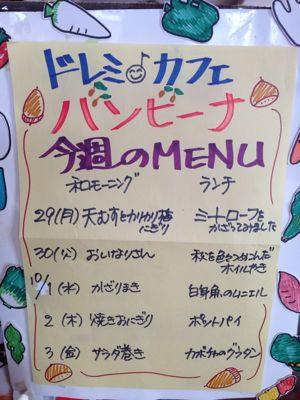 ドレミ カフェ
バンビーナ
今週のMENU
和モーニング ランチ
29(月) 天むすとカリカリ梅にぎり ミートローフをかざってみました
30(火) おいなりさん 秋を色々つめこんだホイルやき
10/1(水) かざりまき 白身魚のムニエル
2(木) 焼きおにぎり ポットパイ
3(金) サラダ巻き カボチャのグラタン